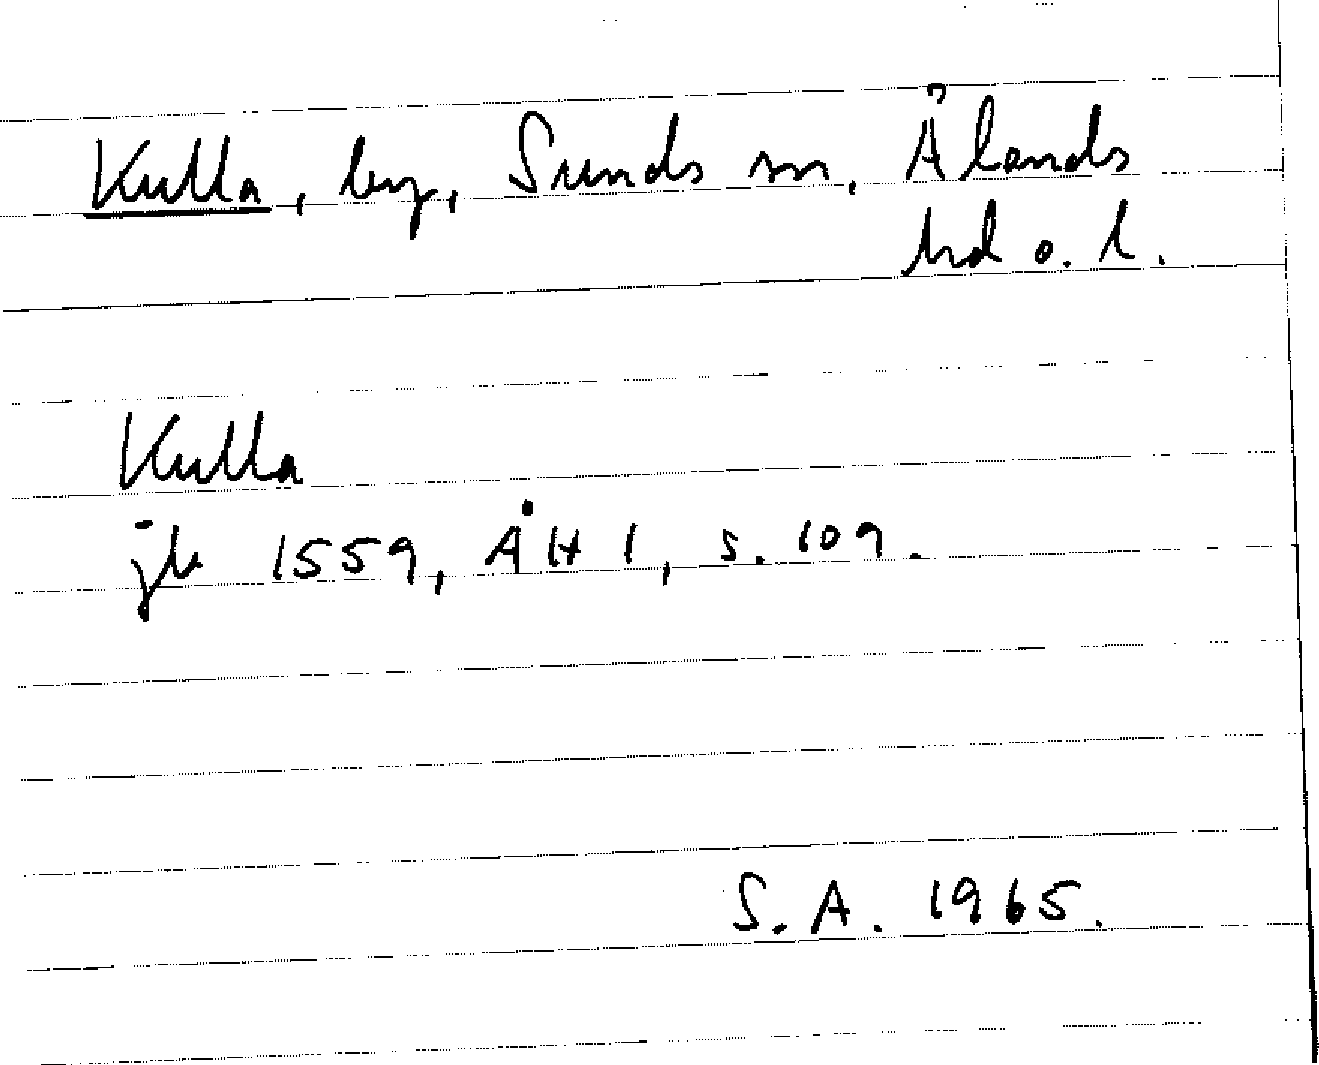 Kulla, by, Sunds sn, Ålands
hd o. l.
Kulla
jb 1559, ÅH 1, s. 109.
S. A. 1965.